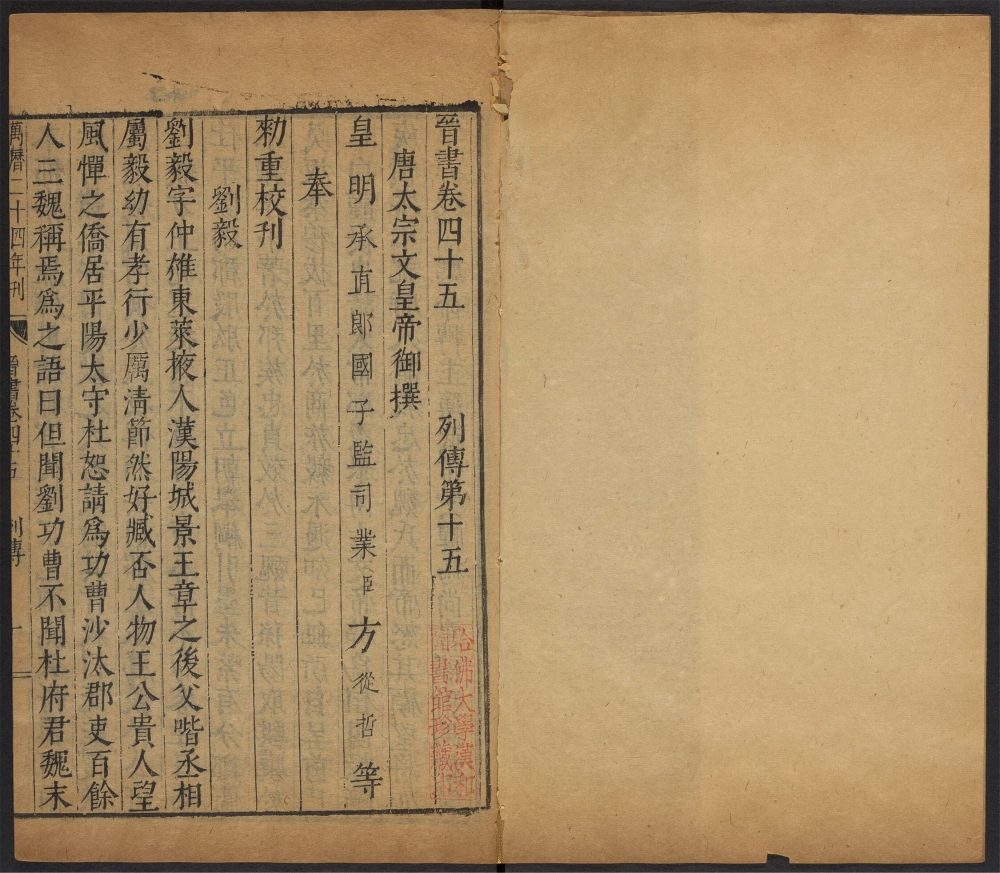 晉書卷四十五　列傳第十五
唐太宗文皇帝御撰
皇明承直郎國子監司業臣方從哲等
奉
勑重校刊
劉毅
劉毅字仲雄東萊掖人漢陽城景王章之後父喈丞相
屬毅幼有孝行少厲清節然好臧否人物王公貴人望
風憚之僑居平陽太守杜恕請爲功曹沙汰郡吏百餘
人三魏稱焉爲之語曰但聞劉功曹不聞杜府君魏末
萬曆二十四年刊　晉書卷四十五　列傳　一
哈佛大學漢和
圖書館珍藏印